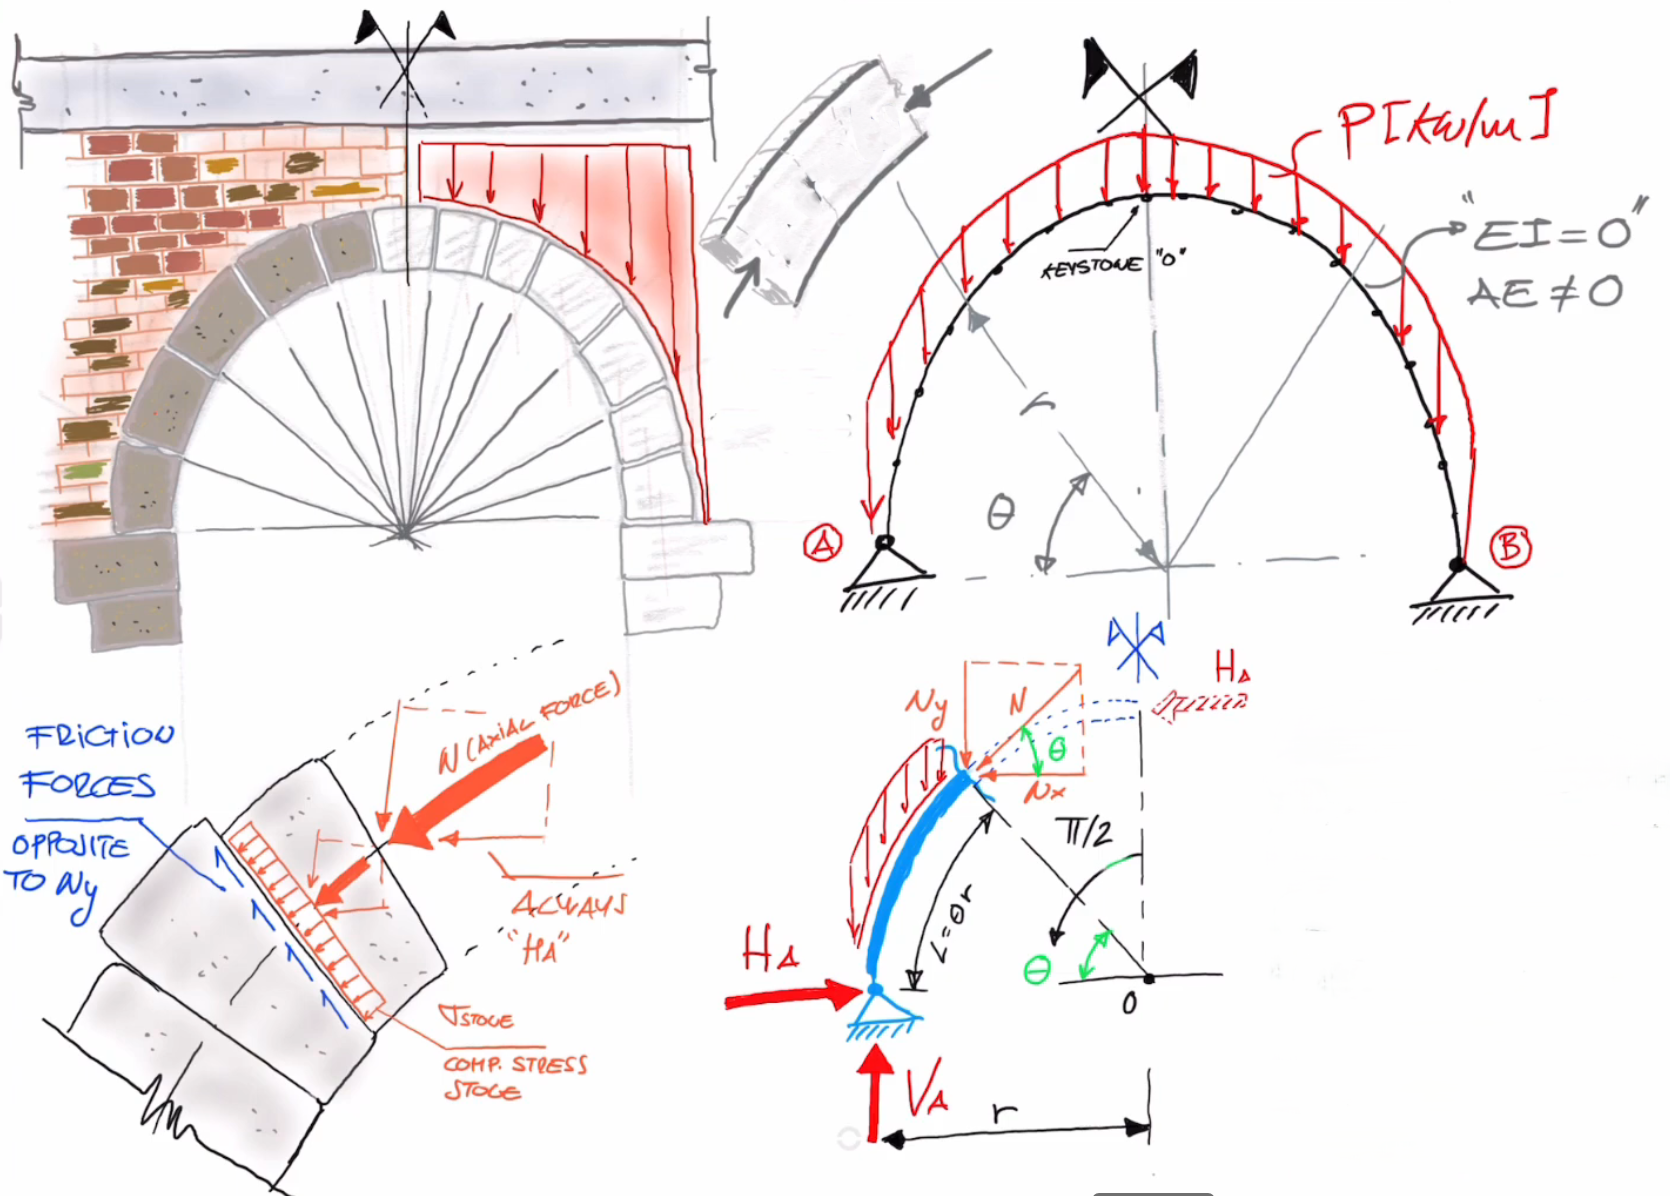 P[KN/m]
"EI=0"
AE≠0
KEYSTONE "O"
r
θ
A
B
FRICTION
FORCES
OPPOSITE
TO Ny
N (AXIAL FORCE)
ALWAYS
"HA"
σSTONE
COMP. STRESS
STONE
Ny
N
θ
Nx
HA
π/2
L=θr
HA
θ
O
VA
r